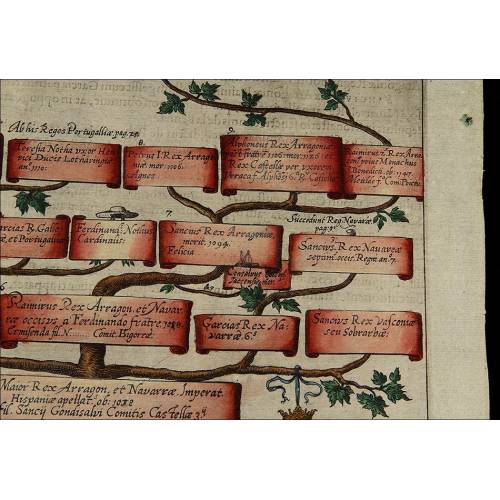 Ab his Reges Portugalliæ pag. 
Teresia Notha vxor Hen
rici Ducis Lotharingiæ
an. 1110.
Petrus I. Rex Arrago
niæ mor. 1106.
Agnes
9.
Alphonsus Rex Arragoniæ
post fratrē 1106. mor. 1126
Rex Castellæ per vxorem
Vrraca f. Alphōsi 6. R. Castellæ
Ramirus 2. Rex Arra
prius Monachus
Benedict. ob. 1147.
Garcias R. Galle
æ, et Portugaliæ
Ferdinandꝰ Nothus
Cardinalis.
7.
Sancius Rex Arragoniæ,
morit. 1094.
Felicia
Succedunt Reg. Navaræ
pag.
Sancius, Rex Navaræ
septim. occis. Regni an. 7.
Ramirus Rex Arragon. et Navar
ræ occisus a Ferdinando fratre. 
Ermisenda fil. N...... Comit. Bigorræ.
Garcias Rex Na:
varræ 6.
Sancius Rex Vasconiæ
seu Sobrarbiæ.
Maior Rex Arragon, et Navarræ, Imperat.
Hispaniæ apellat. ob. 
fil. Sancij Gondisalvi Comitis Castellæ 3.